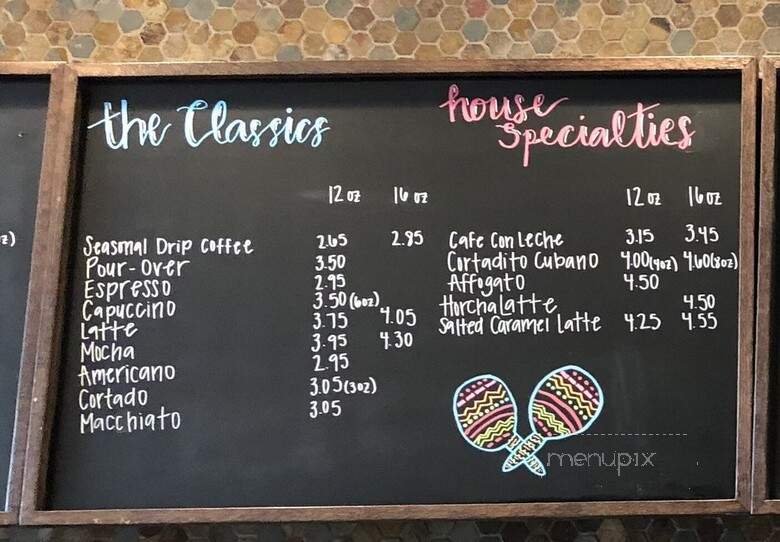 the Classics
12 oz 16 oz
Seasonal Drip Coffee 2.65 2.95
Pour-Over 3.50
Espresso 2.95
Capuccino 3.50 (6oz)
Latte 3.75 4.05
Mocha 3.95 4.30
Americano 2.95
Cortado 3.05 (3oz)
Macchiato 3.05
house
Specialties
12 oz 16 oz
Cafe Con Leche 3.15 3.45
Cortadito Cubano 4.00(4oz) 4.60(8oz)
Affogato 4.50
Horchalatte 4.50
Salted Caramel Latte 4.25 4.55
menupix